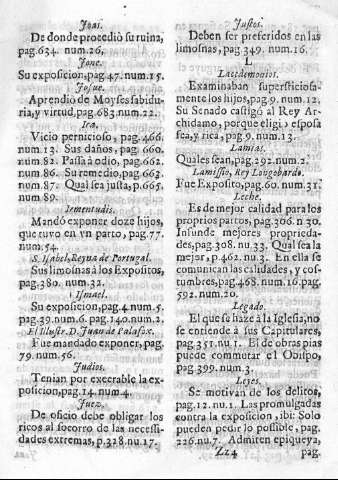 Joas.
De donde procedió su ruina,
pag.634. num.26.
Jone.
Su exposicion, pag.47. num.15.
Josue.
Aprendio de Moyses sabidu-
ria, y virtud, pag.683. num.22.
Ira.
Vicio pernicioso, pag.466.
num.13. Sus daños, pag.660.
num.82. Passa à odio, pag.662.
num.86. Su remedio, pag.663.
num.87. Qual sea justa, p.665.
num.89.
Irmentudis.
Mandó exponer doze hijos,
que tuvo en vn parto, pag.77.
num.54.
S. Isabel, Reyna de Portugal.
Sus limosnas à los Expositos,
pag.380. num.32.
Ismael.
Su exposicion, pag.4. num.5.
pag.39. num.6. pag.140. num.2.
El Illustr. D. Juan de Palafox.
Fue mandado exponer, pag.
79. num.56.
Judios.
Tenian por execrable la ex-
posicion, pag.14. num.4.
Juez.
De oficio debe obligar los
ricos al socorro de las necessi-
dades extremas, p.328. nu.17.
Justos.
Deben ser preferidos en las
limosnas, pag.349. num.16.
L
Lacedemonios.
Examinaban supersticiosa-
mente los hijos, pag.9. num.12.
Su Senado castigó al Rey Ar-
chidamo, porque eligió esposa
fea, y rica, pag.9. num.13.
Lamias.
Quales sean, pag.292. num.2.
Lamissio, Rey Longobardo.
Fue Exposito, pag.60. num.31.
Leche.
Es de mejor calidad para los
proprios partos, pag.306. n.30.
Infunde mejores propried a-
des, pag.308. nu.33. Qual sea la
mejor, p.462. nu.3. En ella se
comunican las calidades, y cos-
tumbres, pag.468. num.16. pag.
592. num.20.
Legado.
El que se haze à la Iglesia, no
se entiende à sus Capitulares,
pag.351. nu.1. El de obras pias
puede commutar el Obispo,
pag.399. num.3.
Leyes.
Se motivan de los delitos,
pag.12. nu.1. Las promulgadas
contra la exposicion, ibi: Solo
pueden pedir lo possible, pag.
226. nu.7. Admiten epiqueya,
Zz4 pag.